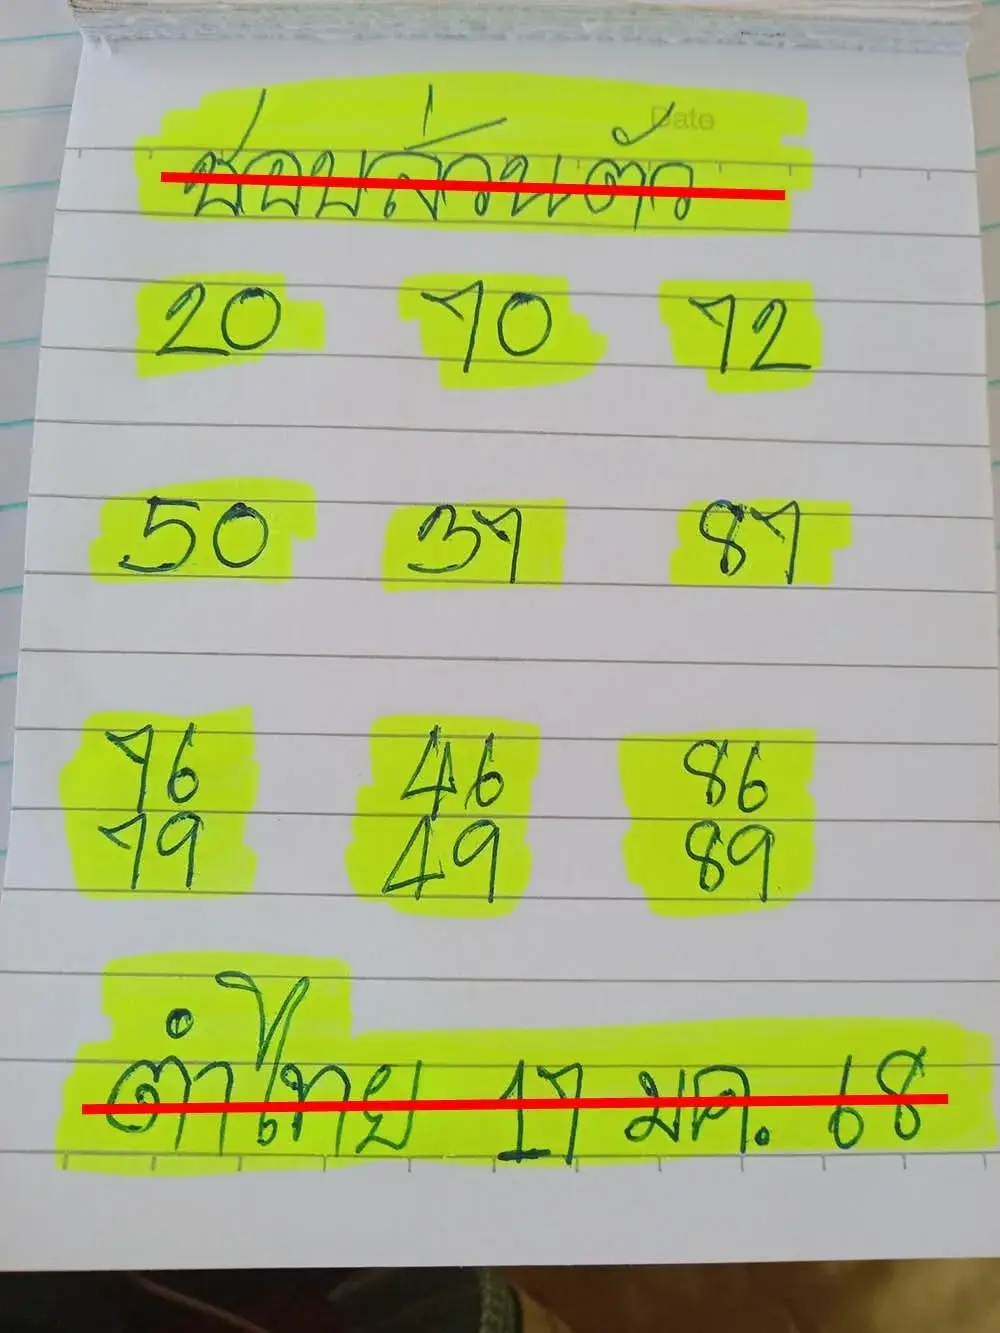 Date
ชอบส่วนตัว
20 70 72
50 37 87
76 46 86
79 49 89
ตำไทย 17 มค. 68